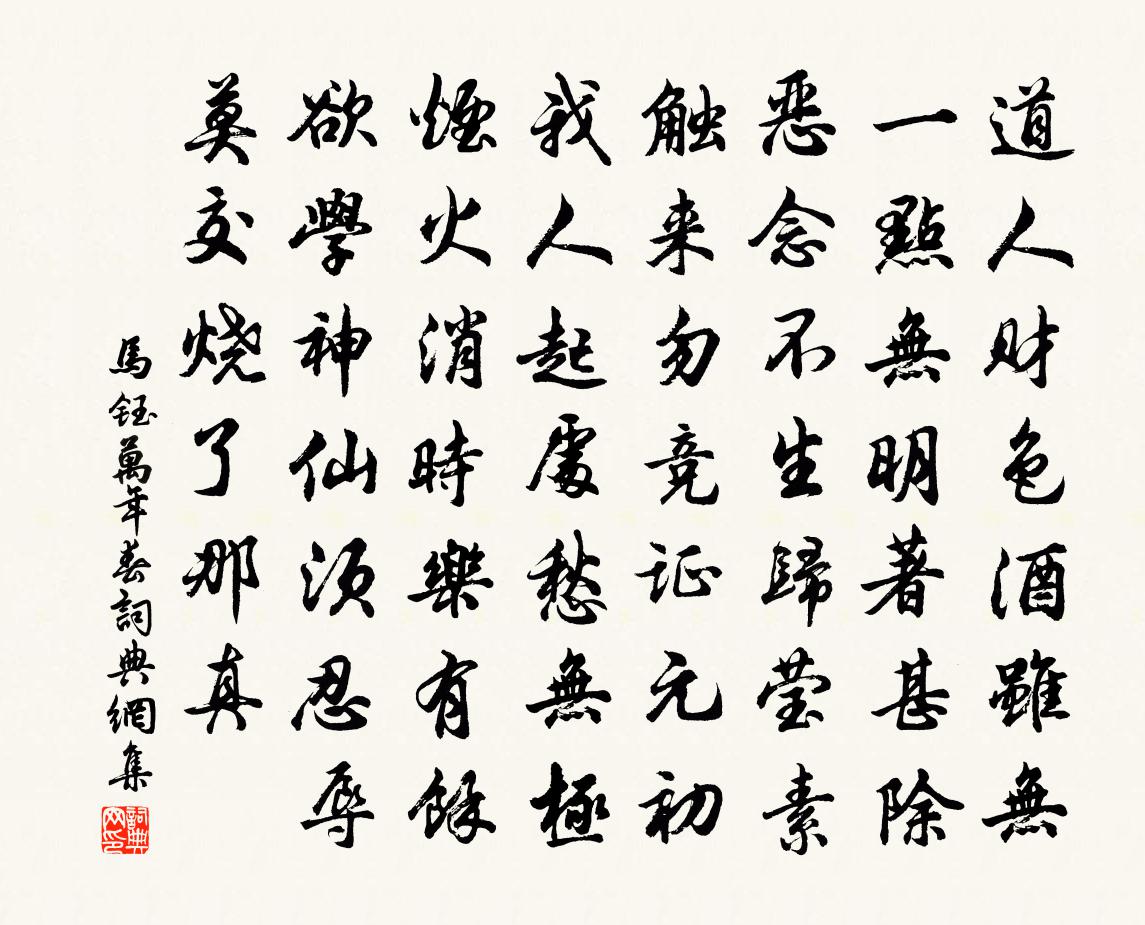 道人财色酒雖無
一點無明著甚除
恶念不生歸莹素
触来勿竞证元初
我人起處愁無極
煙火消時樂有餘
欲學神仙须忍辱
莫交烧了那真
馬钰萬年春詞典網集
詞典网印